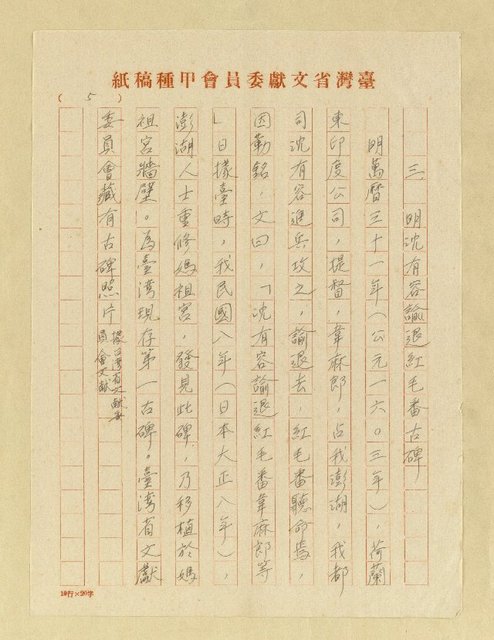 臺灣省文獻委員會甲種稿紙
(5)
三 明沈有容諭退紅毛番古碑
明萬曆三十一年(公元一六。三年),荷蘭
東印度公司,提督,韋麻郎,占我澎湖,我都
司沈有容進兵攻之,諭退去,紅毛番聽命焉,
因勒銘,文曰,「沈有容諭退紅毛番韋麻郎等
」日據臺時,我民國八年(日本大正八年),
澎湖人士重修媽祖宮,發見此碑,乃移植於媽
祖宮牆壁。為臺湾現存第一古碑。臺湾省文獻
委員會藏有古碑照片 據台湾省文獻委
員會文獻
10行×20字